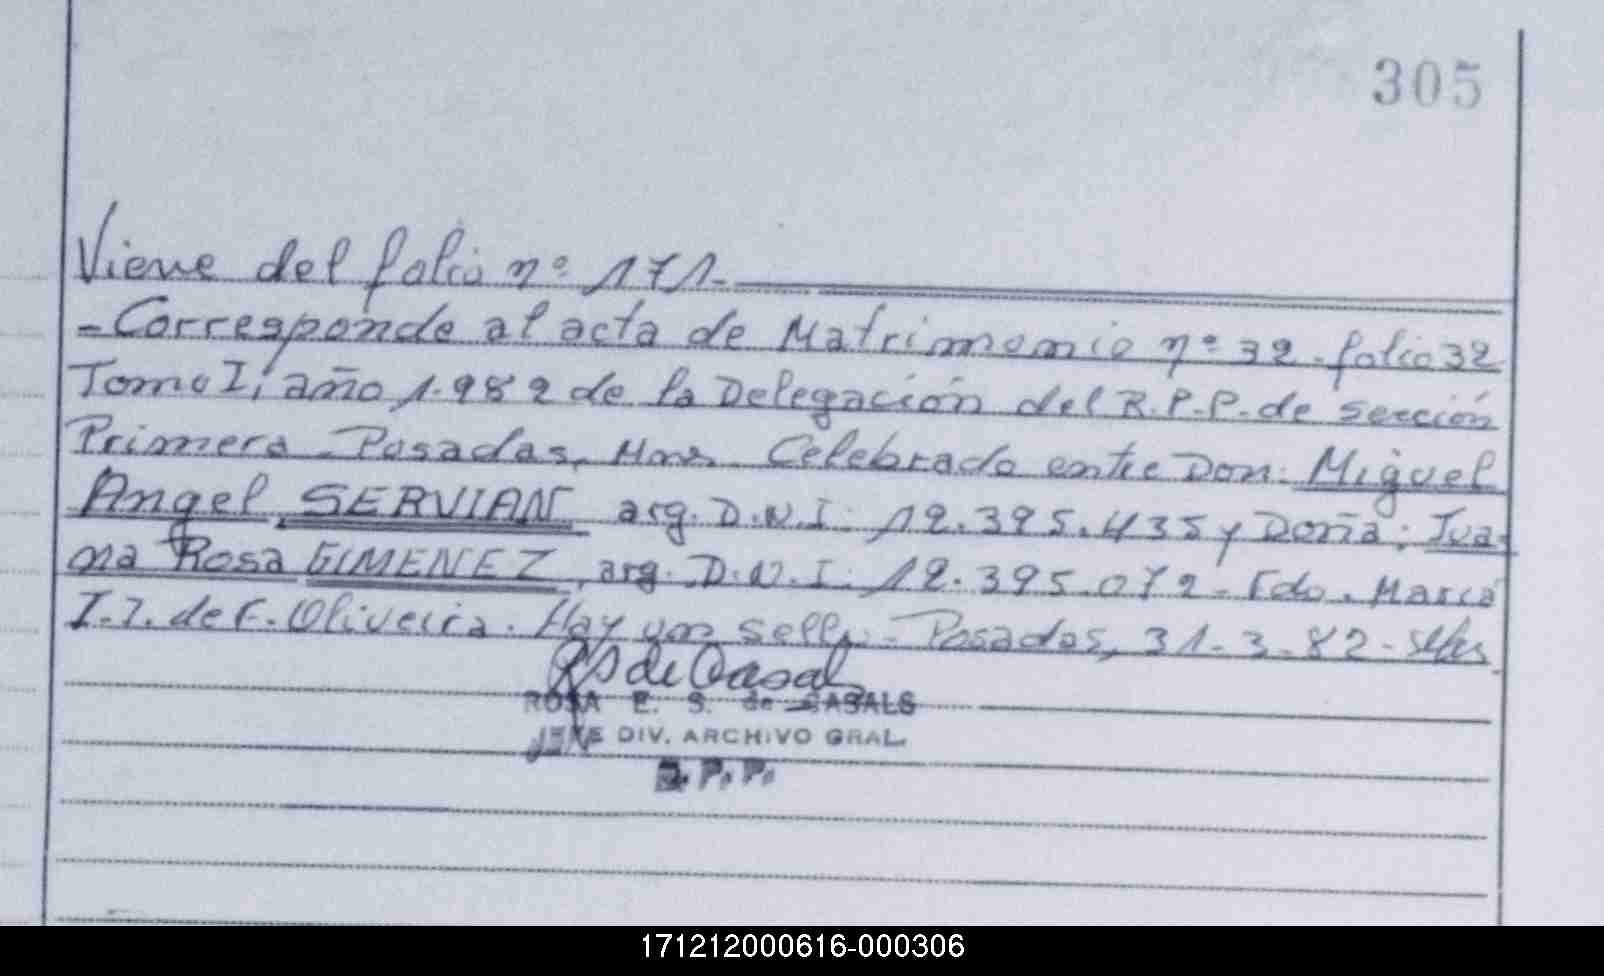 305
Viene del folio nº 171.
-Corresponde al acta de Matrimonio nº 32. folio 32
Tomo I, año 1.982 de la Delegación del R.P.P. de sección
Primera - Posadas, Mnes. Celebrado entre Don: Miguel
Angel SERVIAN arg. D.N.I. 12.395.435 y Doña: Jua-
na Rosa GIMENEZ, arg. D.N.I. 12.395.072 - Fdo. María
I. Z. de F. Oliveira. Hay un sello - Posadas, 31-3-82-
ROSA E. S. de CASALS
JEFE DIV. ARCHIVO GRAL.
R. P. P.
171212000616-000306